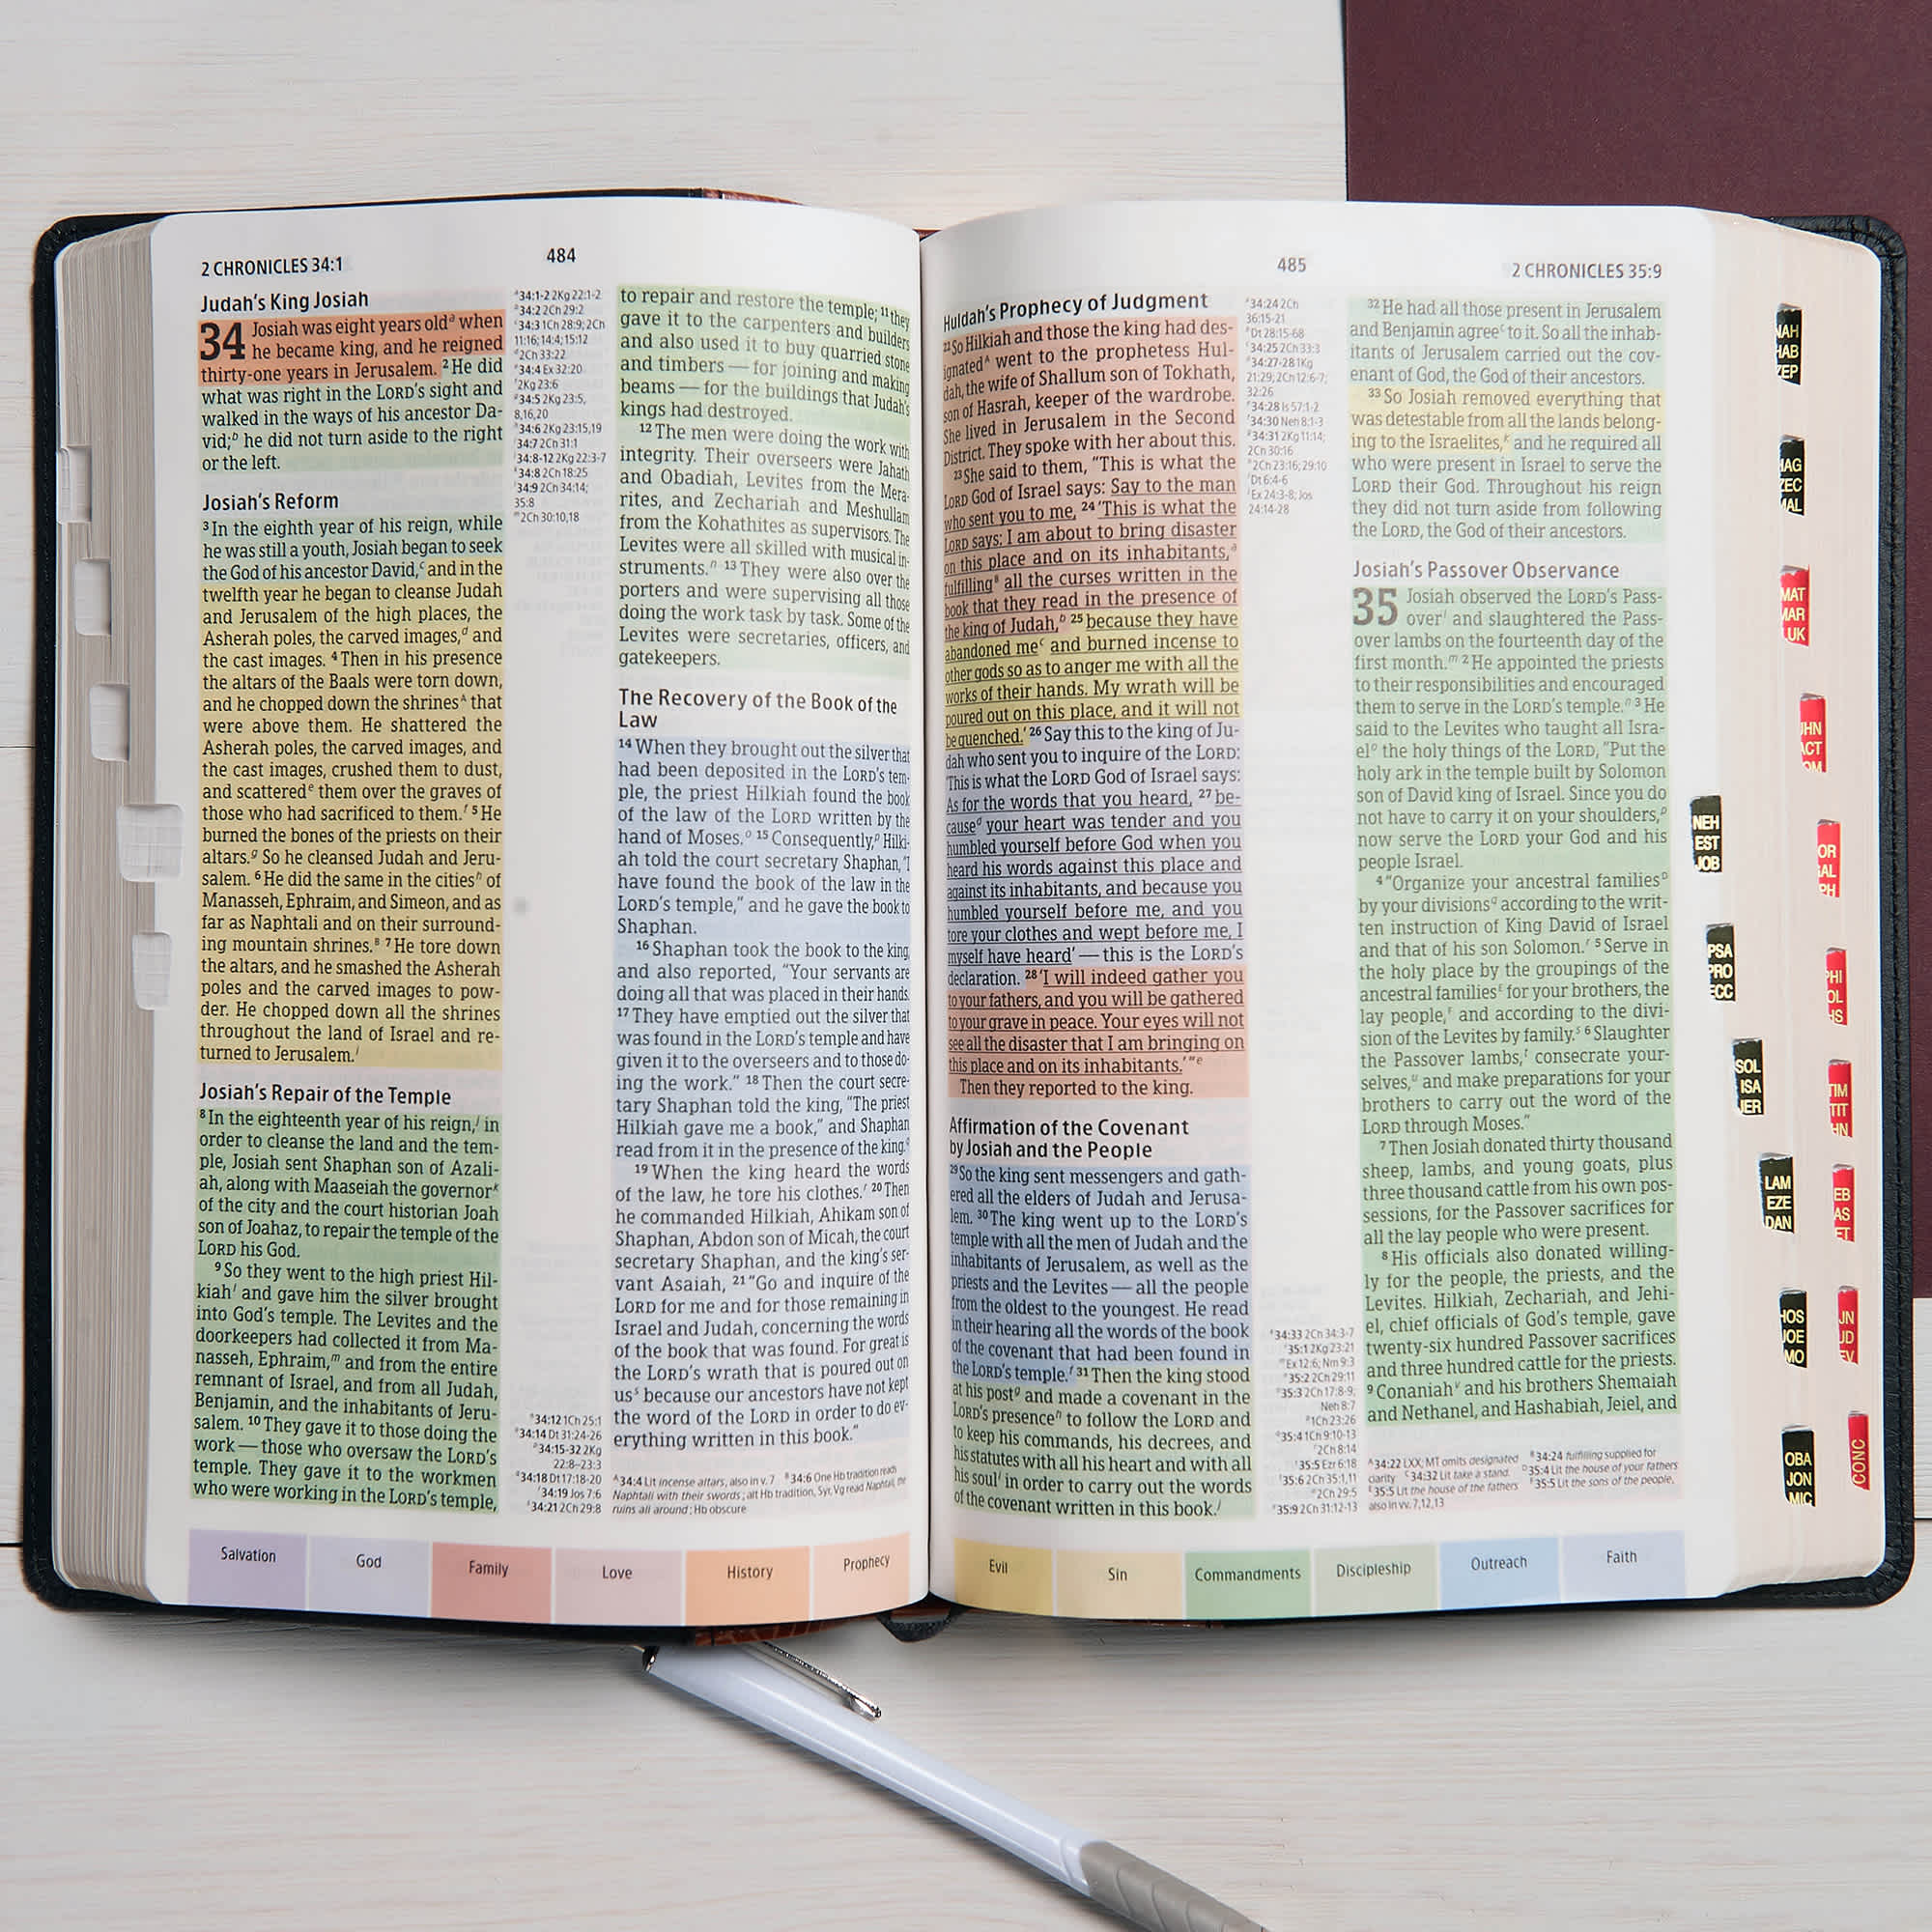 2 CHRONICLES 34:1
484
Judah's King Josiah
34 Josiah was eight years oldᵃ when
he became king, and he reigned
thirty-one years in Jerusalem. ²He did
what was right in the LORD's sight and
walked in the ways of his ancestor Da-
vid;ᵇ he did not turn aside to the right
or the left.
Josiah's Reform
³In the eighth year of his reign, while
he was still a youth, Josiah began to seek
the God of his ancestor David,ᶜ and in the
twelfth year he began to cleanse Judah
and Jerusalem of the high places, the
Asherah poles, the carved images,ᵈ and
the cast images. ⁴Then in his presence
the altars of the Baals were torn down,
and he chopped down the shrinesᴬ that
were above them. He shattered the
Asherah poles, the carved images, and
the cast images, crushed them to dust,
and scatteredᵉ them over the graves of
those who had sacrificed to them.ᶠ ⁵He
burned the bones of the priests on their
altars.ᵍ So he cleansed Judah and Jeru-
salem. ⁶He did the same in the citiesʰ of
Manasseh, Ephraim, and Simeon, and as
far as Naphtali and on their surround-
ing mountain shrines.ᴮ ⁷He tore down
the altars, and he smashed the Asherah
poles and the carved images to pow-
der. He chopped down all the shrines
throughout the land of Israel and re-
turned to Jerusalem.ⁱ
Josiah's Repair of the Temple
⁸In the eighteenth year of his reign,ʲ in
order to cleanse the land and the tem-
ple, Josiah sent Shaphan son of Azali-
ah, along with Maaseiah the governorᵏ
of the city and the court historian Joah
son of Joahaz, to repair the temple of the
LORD his God.
⁹So they went to the high priest Hil-
kiahˡ and gave him the silver brought
into God's temple. The Levites and the
doorkeepers had collected it from Ma-
nasseh, Ephraim,ᵐ and from the entire
remnant of Israel, and from all Judah,
Benjamin, and the inhabitants of Jeru-
salem. ¹⁰They gave it to those doing the
work — those who oversaw the LORD's
temple. They gave it to the workmen
who were working in the LORD's temple,
34:1-2 2Kg 22:1-2
34:2 2Ch 29:2
34:3 1Ch 28:9; 2Ch
11:16; 14:4; 15:12
2Ch 33:22
34:4 Ex 32:20
2Kg 23:6
34:5 2Kg 23:5,
8,16,20
34:6 2Kg 23:15,19
34:7 2Ch 31:1
34:8-12 2Kg 22:3-7
34:8 2Ch 18:25
34:9 2Ch 34:14;
35:8
ᵐ2Ch 30:10,18
34:12 1Ch 25:1
34:14 Dt 31:24-26
34:15-32 2Kg
22:8–23:3
34:18 Dt 17:18-20
34:19 Jos 7:6
34:21 2Ch 29:8
to repair and restore the temple; ¹¹they
gave it to the carpenters and builders
and also used it to buy quarried stone
and timbers — for joining and making
beams — for the buildings that Judah's
kings had destroyed.
¹²The men were doing the work with
integrity. Their overseers were Jahath
and Obadiah, Levites from the Mera-
rites, and Zechariah and Meshullam
from the Kohathites as supervisors. The
Levites were all skilled with musical in-
struments.ⁿ ¹³They were also over the
porters and were supervising all those
doing the work task by task. Some of the
Levites were secretaries, officers, and
gatekeepers.
The Recovery of the Book of the
Law
¹⁴When they brought out the silver that
had been deposited in the LORD's tem-
ple, the priest Hilkiah found the book
of the law of the LORD written by the
hand of Moses.ᵒ ¹⁵Consequently,ᵖ Hilki-
ah told the court secretary Shaphan, "I
have found the book of the law in the
LORD's temple," and he gave the book to
Shaphan.
¹⁶Shaphan took the book to the king,
and also reported, "Your servants are
doing all that was placed in their hands.
¹⁷They have emptied out the silver that
was found in the LORD's temple and have
given it to the overseers and to those do-
ing the work." ¹⁸Then the court secre-
tary Shaphan told the king, "The priest
Hilkiah gave me a book," and Shaphan
read from it in the presence of the king.
¹⁹When the king heard the words
of the law, he tore his clothes.ʳ ²⁰Then
he commanded Hilkiah, Ahikam son of
Shaphan, Abdon son of Micah, the court
secretary Shaphan, and the king's ser-
vant Asaiah, ²¹"Go and inquire of the
LORD for me and for those remaining in
Israel and Judah, concerning the words
of the book that was found. For great is
the LORD's wrath that is poured out on
usˢ because our ancestors have not kept
the word of the LORD in order to do ev-
erything written in this book."
ᴬ34:4 Lit incense altars, also in v. 7 ᴮ34:6 One Hb tradition reads
Naphtali with their swords; alt Hb tradition, Syr, Vg read Naphtali, the
ruins all around; Hb obscure
Salvation
God
Family
Love
History
Prophecy
485
2 CHRONICLES 35:9
Huldah's Prophecy of Judgment
²²So Hilkiah and those the king had des-
ignatedᴬ went to the prophetess Hul-
dah, the wife of Shallum son of Tokhath,
son of Hasrah, keeper of the wardrobe.
She lived in Jerusalem in the Second
District. They spoke with her about this.
²³She said to them, "This is what the
LORD God of Israel says: Say to the man
who sent you to me, ²⁴'This is what the
LORD says: I am about to bring disaster
on this place and on its inhabitants,ᵃ
fulfillingᴮ all the curses written in the
book that they read in the presence of
the king of Judah,ᵇ ²⁵because they have
abandoned meᶜ and burned incense to
other gods so as to anger me with all the
works of their hands. My wrath will be
poured out on this place, and it will not
be quenched.' ²⁶Say this to the king of Ju-
dah who sent you to inquire of the LORD:
'This is what the LORD God of Israel says:
As for the words that you heard, ²⁷be-
causeᵈ your heart was tender and you
humbled yourself before God when you
heard his words against this place and
against its inhabitants, and because you
humbled yourself before me, and you
tore your clothes and wept before me, I
myself have heard' — this is the LORD's
declaration. ²⁸'I will indeed gather you
to your fathers, and you will be gathered
to your grave in peace. Your eyes will not
see all the disaster that I am bringing on
this place and on its inhabitants.'"ᵉ
Then they reported to the king.
Affirmation of the Covenant
by Josiah and the People
²⁹So the king sent messengers and gath-
ered all the elders of Judah and Jerusa-
lem. ³⁰The king went up to the LORD's
temple with all the men of Judah and the
inhabitants of Jerusalem, as well as the
priests and the Levites — all the people
from the oldest to the youngest. He read
in their hearing all the words of the book
of the covenant that had been found in
the LORD's temple.ᶠ ³¹Then the king stood
at his postᵍ and made a covenant in the
LORD's presenceʰ to follow the LORD and
to keep his commands, his decrees, and
his statutes with all his heart and with all
his soulⁱ in order to carry out the words
of the covenant written in this book.ʲ
34:24 2Ch
36:15-21
Dt 28:15-68
34:25 2Ch 33:3
34:27-28 1Kg
21:29; 2Ch 12:6-7;
32:26
34:28 Is 57:1-2
34:30 Neh 8:1-3
34:31 2Kg 11:14;
2Ch 30:16
2Ch 23:16; 29:10
Dt 6:4-6
Ex 24:3-8; Jos
24:14-28
34:33 2Ch 34:3-7
35:1 2Kg 23:21
ᵐEx 12:6; Nm 9:3
35:2 2Ch 29:11
35:3 2Ch 17:8-9;
Neh 8:7
1Ch 23:26
35:4 1Ch 9:10-13
2Ch 8:14
35:5 Ezr 6:18
35:6 2Ch 35:1,11
2Ch 29:5
35:9 2Ch 31:12-13
³²He had all those present in Jerusalem
and Benjamin agreeᶜ to it. So all the inhab-
itants of Jerusalem carried out the cov-
enant of God, the God of their ancestors.
³³So Josiah removed everything that
was detestable from all the lands belong-
ing to the Israelites,ᵏ and he required all
who were present in Israel to serve the
LORD their God. Throughout his reign
they did not turn aside from following
the LORD, the God of their ancestors.
Josiah's Passover Observance
35 Josiah observed the LORD's Pass-
overˡ and slaughtered the Pass-
over lambs on the fourteenth day of the
first month.ᵐ ²He appointed the priests
to their responsibilities and encouraged
them to serve in the LORD's temple.ⁿ ³He
said to the Levites who taught all Isra-
elᵒ the holy things of the LORD, "Put the
holy ark in the temple built by Solomon
son of David king of Israel. Since you do
not have to carry it on your shoulders,ᵖ
now serve the LORD your God and his
people Israel.
⁴"Organize your ancestral familiesᴰ
by your divisionsᑫ according to the writ-
ten instruction of King David of Israel
and that of his son Solomon.ʳ ⁵Serve in
the holy place by the groupings of the
ancestral familiesᴱ for your brothers, the
lay people,ᶠ and according to the divi-
sion of the Levites by family.ˢ ⁶Slaughter
the Passover lambs,ᵗ consecrate your-
selves,ᵘ and make preparations for your
brothers to carry out the word of the
LORD through Moses."
⁷Then Josiah donated thirty thousand
sheep, lambs, and young goats, plus
three thousand cattle from his own pos-
sessions, for the Passover sacrifices for
all the lay people who were present.
⁸His officials also donated willing-
ly for the people, the priests, and the
Levites. Hilkiah, Zechariah, and Jehi-
el, chief officials of God's temple, gave
twenty-six hundred Passover sacrifices
and three hundred cattle for the priests.
⁹Conaniahᵛ and his brothers Shemaiah
and Nethanel, and Hashabiah, Jeiel, and
ᴬ34:22 LXX; MT omits designated ᴮ34:24 fulfilling supplied for
clarity ᶜ34:32 Lit take a stand ᴰ35:4 Lit the house of your fathers
ᴱ35:5 Lit the house of the fathers ᶠ35:5 Lit the sons of the people,
also in vv. 7,12,13
Evil
Sin
Commandments
Discipleship
Outreach
Faith
NEH
EST
JOB
PSA
PRO
ECC
SOL
ISA
JER
LAM
EZE
DAN
HOS
JOE
MO
OBA
JON
MIC
NAH
HAB
ZEP
HAG
ZEC
MAL
MAT
MAR
LUK
JHN
ACT
OM
OR
GAL
PH
PHI
OL
HS
TIM
TIT
HN
EB
AS
ET
JN
JD
EV
CONC